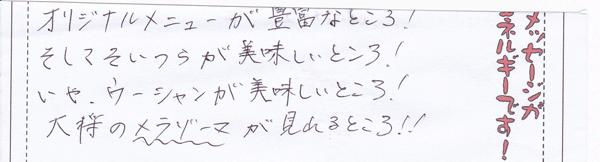 オリジナルメニューが豊富なところ!
そしてそいつらが美味しいところ!
いや、ウーシャンが美味しいところ!
大将のメラゾーマが見れるところ!!
メッセージが
ネルギーです!